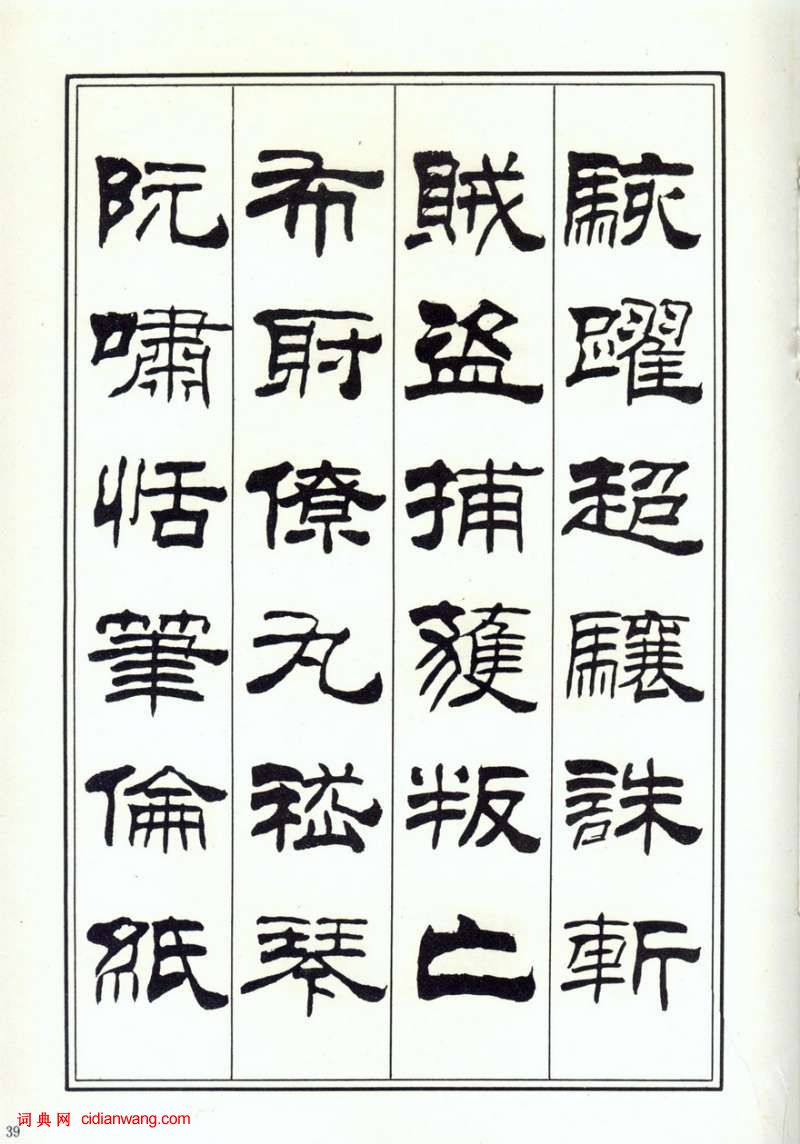 駭躍超驤誅斬
賊盜捕獲叛亡
布射僚丸嵇琴
阮嘯恬筆倫紙
39
词典网 cidianwang.com